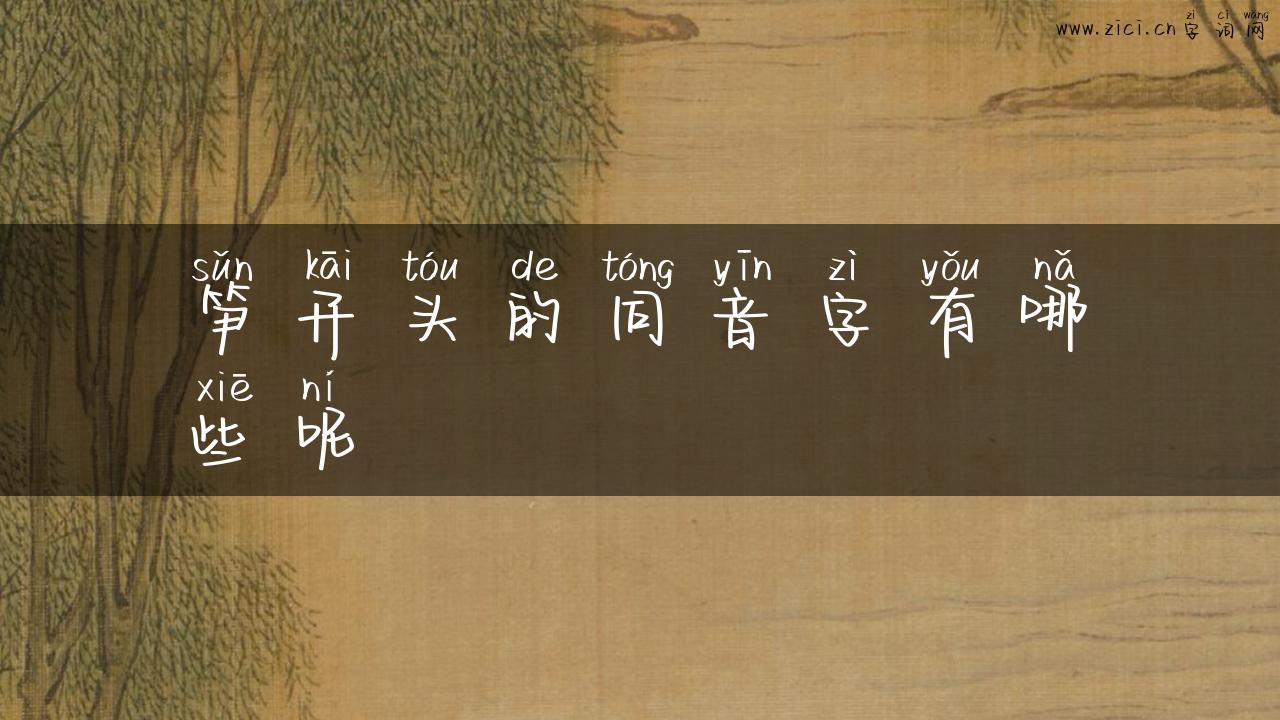 zì cí wǎng
www.zici.cn 字词网
sǔn kāi tóu de tóng yīn zì yǒu nǎ
笋开头的同音字有哪
xiē ní
些呢